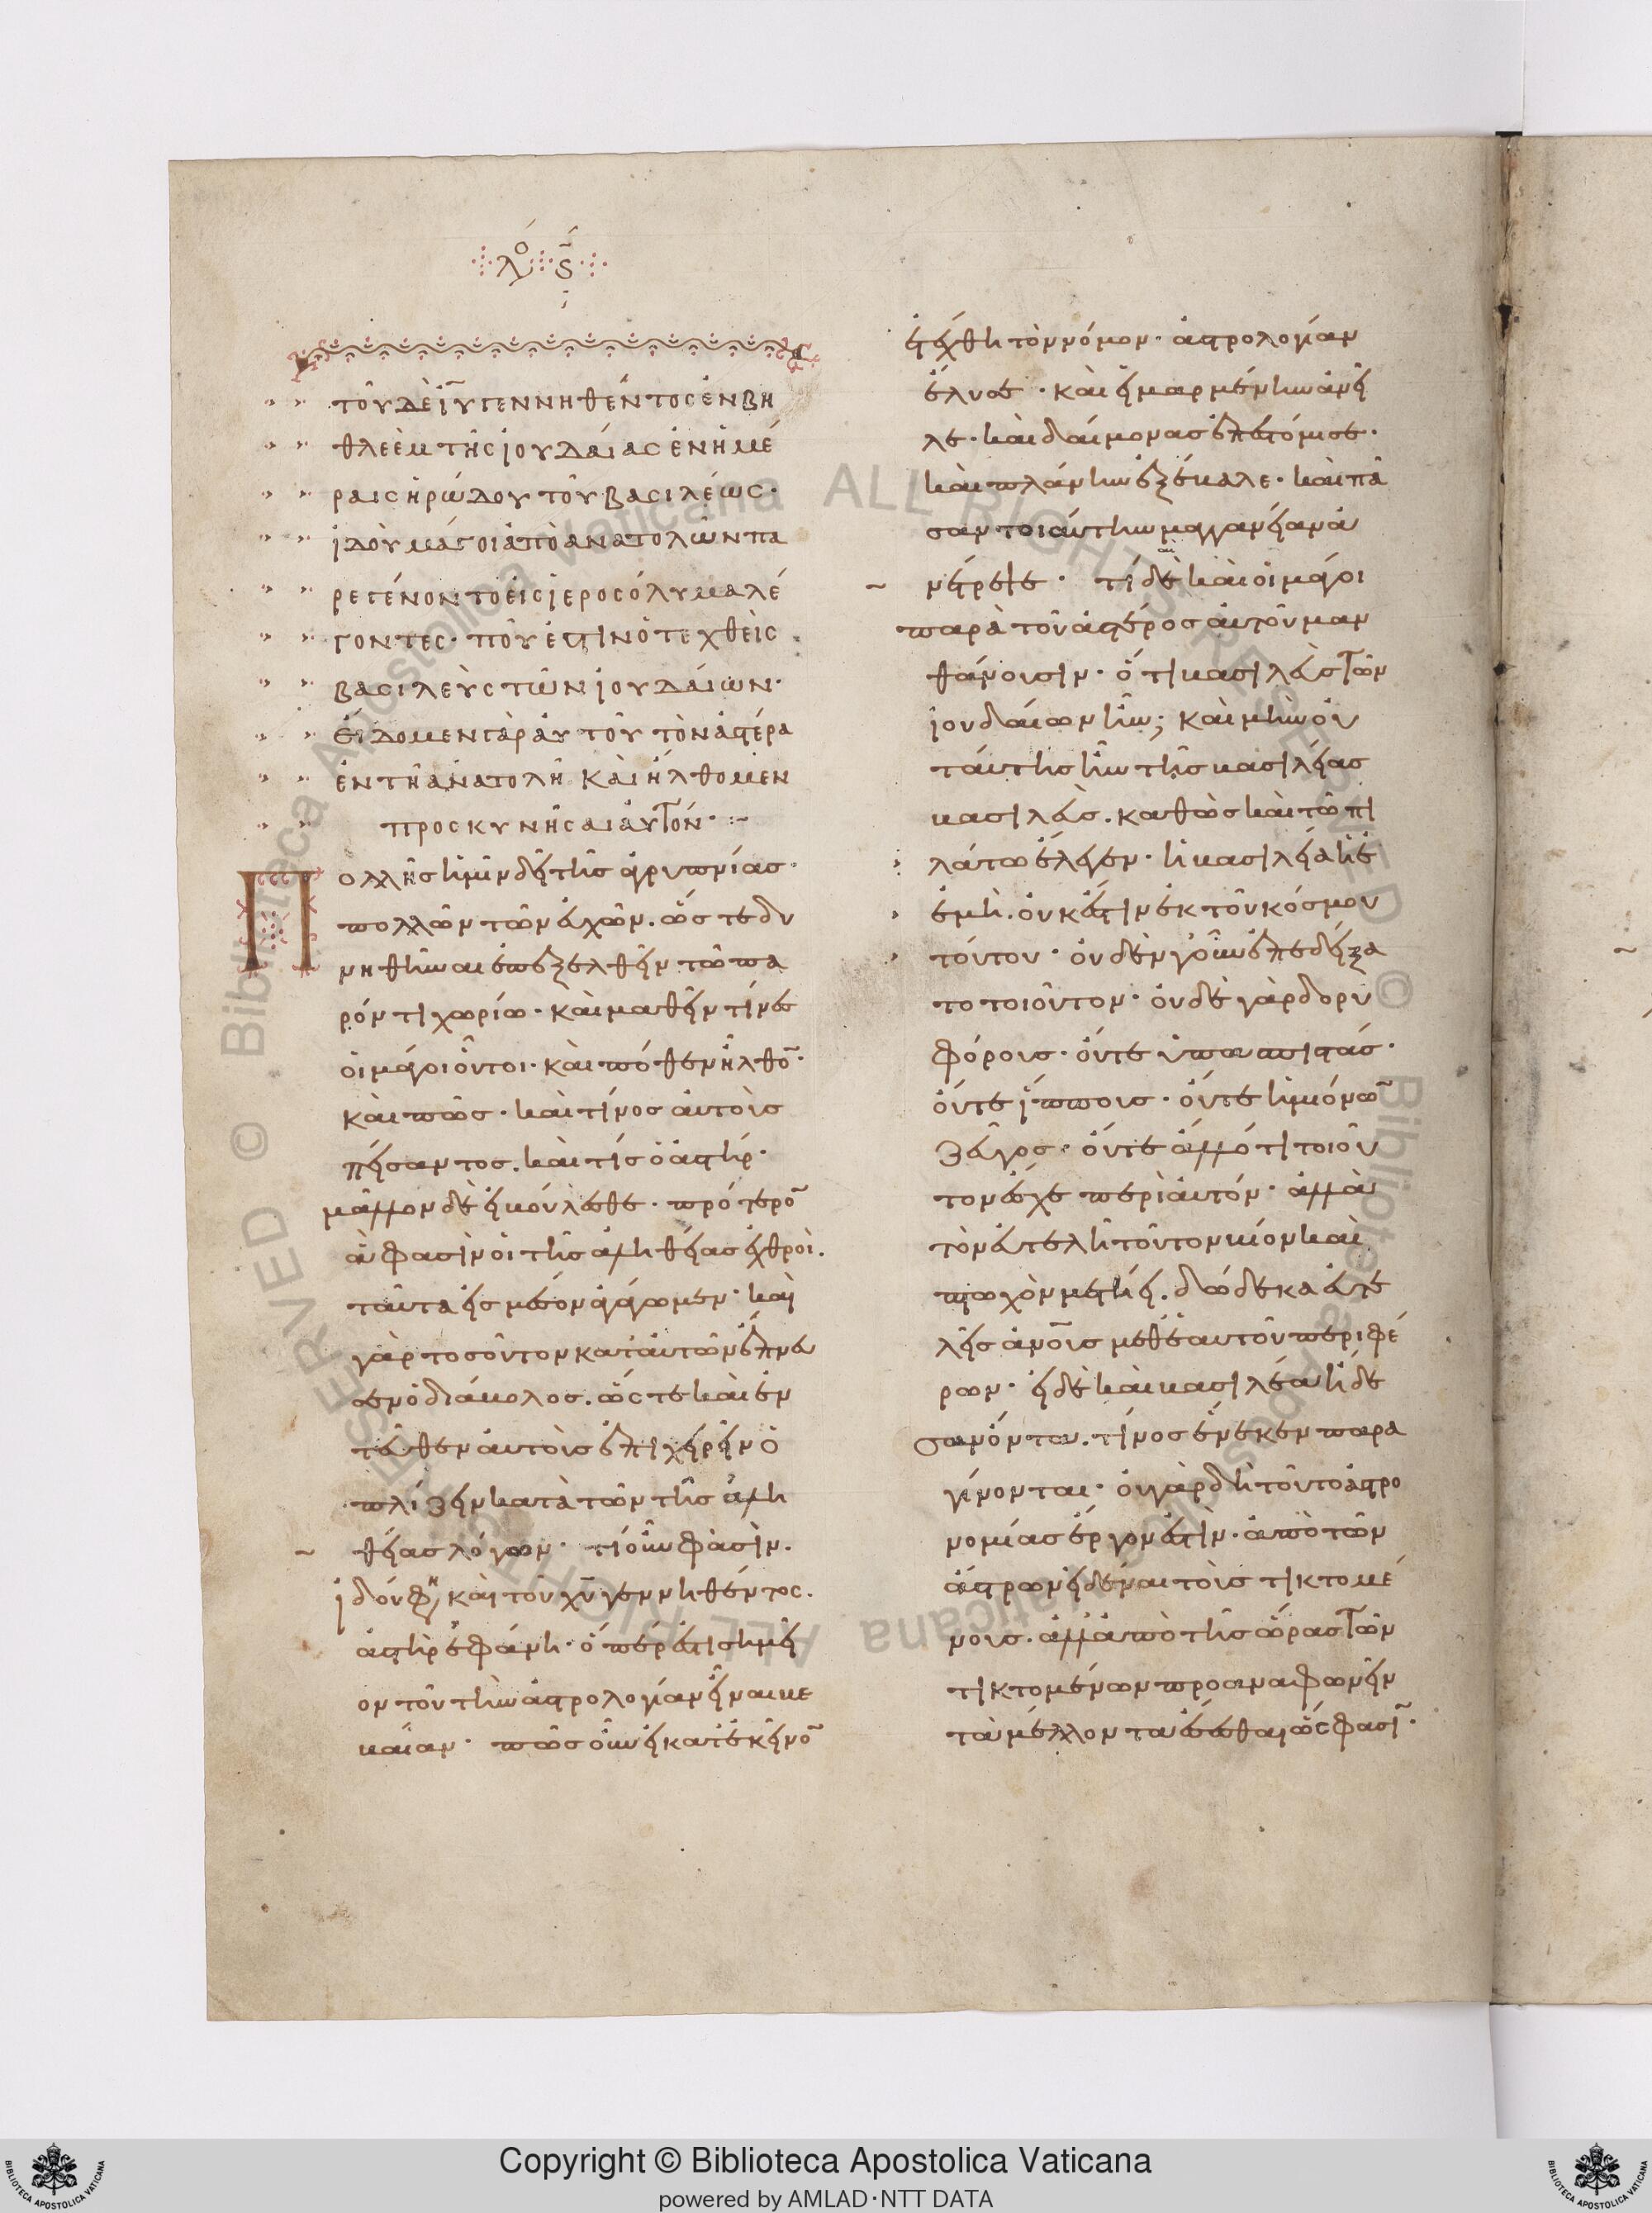 λο ϛ
τοῦ δὲ ἰῦ γεννηθέντος ἐν βη
θλεὲμ τῆς ἰουδαίας ἐν ἡμέ
ραις ἡρώδου τοῦ βασιλέως·
ἰδοὺ μάγοι ἀπὸ ἀνατολῶν πα
ρεγένοντο εἰς ἱεροσόλυμα λέ
γοντες· ποῦ ἐστιν ὁ τεχθεὶς
βασιλεὺς τῶν ἰουδαίων·
εἴδομεν γὰρ αὐτοῦ τὸν ἀστέρα
ἐν τῆ ἀνατολῆ καὶ ἤλθομεν
προσκυνῆσαι αὐτόν· :~
Πολλῆς ἡμῖν δεῖ τῆς ἀγρυπνίας·
πολλῶν τῶν εὐχῶν. ὥστε δυ
νηθῆναι ἐπεξελθεῖν τῶ πα
ρόντι χωρίω· καὶ μαθεῖν τίνες
οἱ μάγοι οὗτοι· καὶ πόθεν ἦλθο̄·
καὶ πῶς· καὶ τίνος αὐτοὺς
πείσαντος. καὶ τίς ὁ ἀστήρ·
μᾶλλον δὲ εἰ βούλεσθε· πρότερο̄
ἅ φασιν οἱ τῆς ἀληθείας ἐχθροὶ.
ταῦτα εἰς μέσον ἀγάγωμεν· καὶ
γὰρ τοσοῦτον κατ' αὐτῶν ἔπνευ
σεν ὁ διάβολος. ὥστε καὶ ἐν
τεῦθεν αὐτοὺς ἐπιχειρεῖν ὁ
πλίζειν κατὰ τῶν τῆς ἀλη
θείας λόγων· τί οὖν φασὶν.
ἰδού φη καὶ τοῦ χῦ γεννηθέντος.
ἀστὴρ ἐφάνη· ὅπερ ἐστι σημεῖ
ον τοῦ τὴν ἀστρολογίαν εἶναι βε
βαίαν· πῶς οὖν εἰ κατ' ἐκεῖνο̄
ἐτέχθη τὸν νόμον· ἀστρολογίαν
ἔλυσε· καὶ εἱμαρμένην ἀνεῖ
λε· καὶ δαίμονας ἐπεστόμισε·
καὶ πλάνην ἐξέβαλε· καὶ πᾶ
σαν τοιαύτην μαγγανείαν ἀ
νέτρεψε· τί δὲ καὶ οἱ μάγοι
παρὰ τοῦ ἀστέρος αὐτοῦ μαν
θάνουσιν· ὅτι βασιλεὺς τῶν
ἰουδαίων ἦν; καὶ μὴν οὐ
ταύτης ἦν τῆς βασιλείας
βασιλεὺς. καθὼς καὶ τῶ πι
λάτω ἔλεγεν· ἡ βασιλεία ἡ
ἐμὴ. οὐκ ἔστιν ἐκ τοῦ κόσμου
τούτου· οὐδὲν γοῦν ἐπεδείξα
το τοιοῦτον· οὐδὲ γὰρ δορυ
φόρους· οὔτε ὑπασπιστάς·
οὔτε ἵππους· οὔτε ἡμιόνω̄
ζεῦγος· οὔτε ἄλλό τι τοιοῦ
τον ἔσχε περὶ αὐτόν· ἀλλὰ
τὸν εὐτελῆ τοῦτον βίον καὶ
πτωχὸν μετήει. δώδεκα εὐτε
λεῖς ἀνοῦς μεθ' ἑαυτοῦ περιφέ
ρων· εἰ δὲ καὶ βασιλέα ἤδε
σαν ὄντα. τίνος ἕνεκεν παρα
γίνονται· οὐ γὰρ δὴ τοῦτο ἀστρο
νομίας ἔργον ἐστὶν· ἀπὸ τῶν
ἄστρων εἰδέναι τοὺς τικτομέ
νους. ἀλλ' ἀπὸ τῆς ὥρας τῶν
τικτομένων προαναφωνεῖν
τὰ μέλλοντα ἔσεσθαι ὥς φασῑ·
Copyright © Biblioteca Apostolica Vaticana
powered by AMLAD·NTT DATA